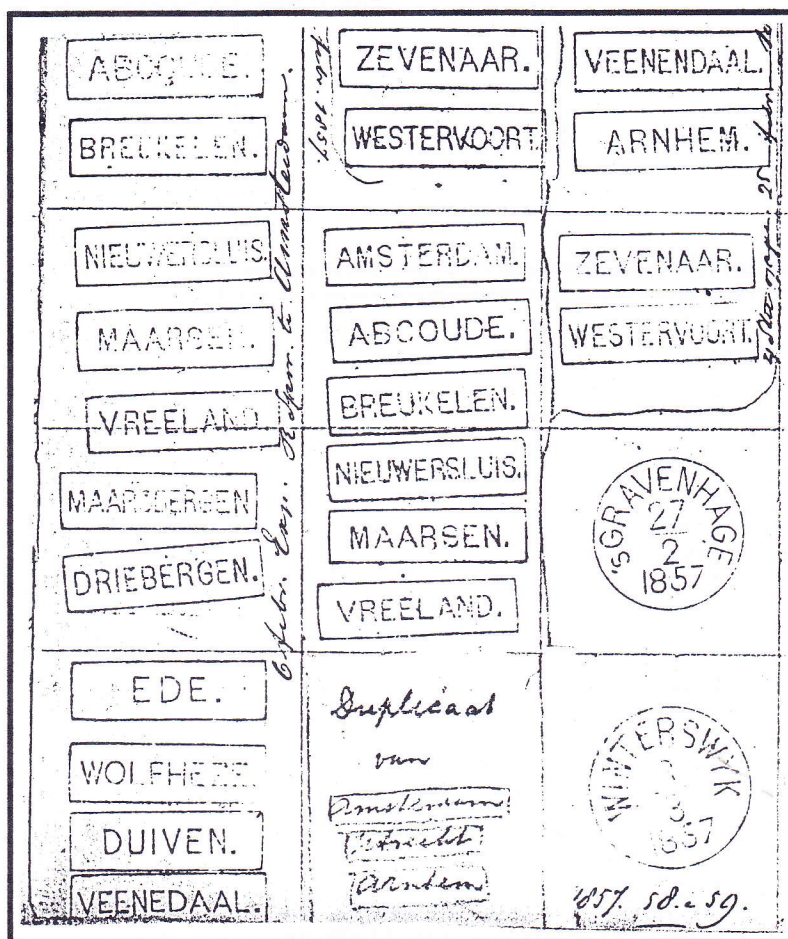 ABCOUDE.
BREUKELEN.
NIEUWERSLUIS.
MAARSEN.
VREELAND.
MAARSBERGEN
DRIEBERGEN.
EDE.
WOLFHEZE.
DUIVEN.
VEENEDAAL.
6 febr. Exp. te Amsterdam.
1857
ZEVENAAR.
WESTERVOORT.
AMSTERDAM.
ABCOUDE.
BREUKELEN.
NIEUWERSLUIS.
MAARSEN.
VREELAND.
Duplicaat
van
Amsterdam
Utrecht
Arnhem
VEENENDAAL.
ARNHEM.
ZEVENAAR.
WESTERVOORT.
25
'sGRAVENHAGE
27
2
1857
WINTERSWYK
3
1857
1857. 58. 59.